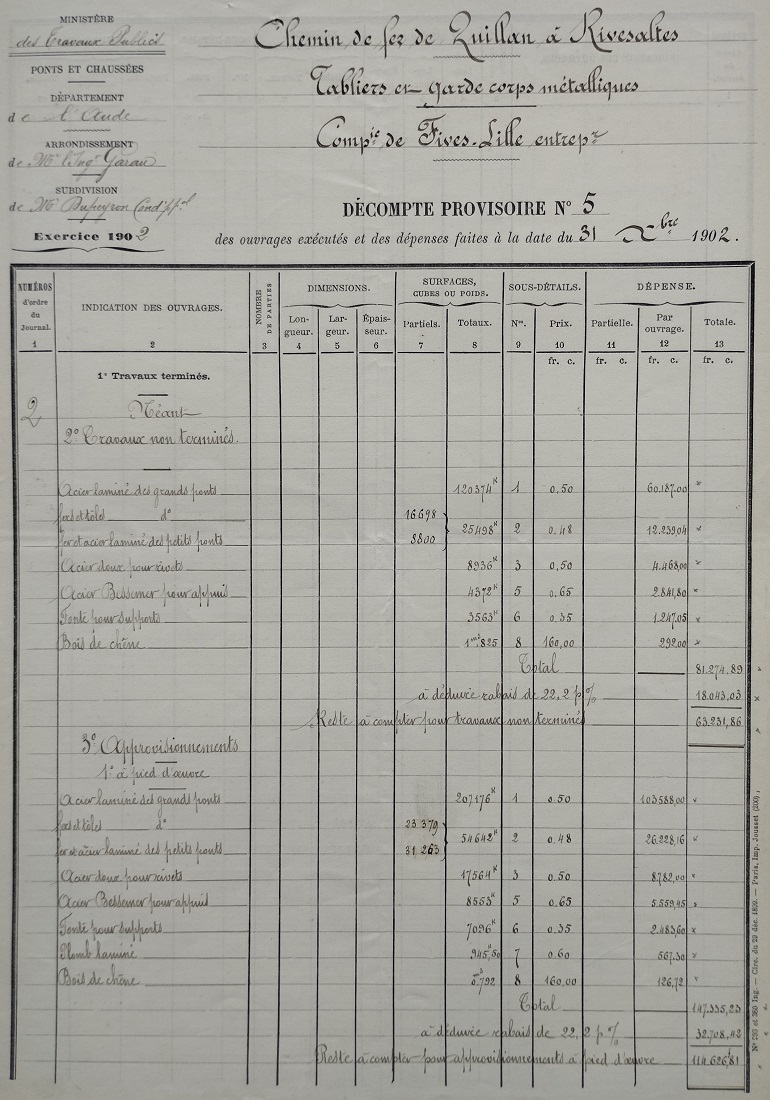 MINISTÈRE
des Travaux Publics
PONTS ET CHAUSSÉES
DÉPARTEMENT
de l'Aude
ARRONDISSEMENT
de Mr l'Ingr Garau
SUBDIVISION
de Mr Dupeyron Condr ppal
Exercice 1902
Chemin de fer de Quillan à Rivesaltes
Tabliers et garde corps métalliques
Compie de Fives-Lille entrepr
DÉCOMPTE PROVISOIRE No 5
des ouvrages exécutés et des dépenses faites à la date du 31 Xbre 1902.
NUMÉROS d'ordre du Journal. INDICATION DES OUVRAGES. NOMBRE DE PARTIES DIMENSIONS. SURFACES, CUBES OU POIDS. SOUS-DÉTAILS. DÉPENSE.
Longueur. Largeur. Épaisseur. Partiels. Totaux. Nos. Prix. Partielle. Par ouvrage. Totale.
1 2 3 4 5 6 7 8 9 10 11 12 13
fr. c. fr. c. fr. c. fr. c.
1o Travaux terminés.
2 Néant
2o Travaux non terminés.
Acier laminé des grands ponts 120374K 1 0,50 60.187,00 "
fers et tôles do 16698
25498K 2 0.48 12.239,04 "
fer et acier laminé des petits ponts 8800
Acier doux pour rivets 8936K 3 0,50 4.468,00 "
Acier Bessemer pour appuis 4372K 5 0.65 2.841,80 "
Fonte pour supports 3563K 6 0.35 1.247,05 "
Bois de chêne 1m3825 8 160,00 292,00 "
Total 81.274,89
à déduire rabais de 22,2 p % 18.043,03
Reste à compter pour travaux non terminés 63.231,86
3o Approvisionnements
1o à pied d'œuvre
Acier laminé des grands ponts 207176K 1 0.50 103588,00 "
fers et tôles do 23 379
54642K 2 0.48 26.228,16 "
fer et acier laminé des petits ponts 31 263
Acier doux pour rivets 17564K 3 0.50 8782,00 "
Acier Bessemer pour appuis 8553K 5 0.65 5.559,45 "
Fonte pour supports 7096K 6 0.35 2.483,60 "
Plomb laminé 945,K50 7 0.60 567.30 "
Bois de chêne 0m3792 8 160,00 126,72 "
Total 147.335,23
à déduire rabais de 22,2 p % 32.708,42
Reste à compter pour approvisionnements à pied d'œuvre 114.626,81
Nos 239 et 380 Ing. — Circ. du 29 déc. 1899. — Paris, Imp. Jousset (200),